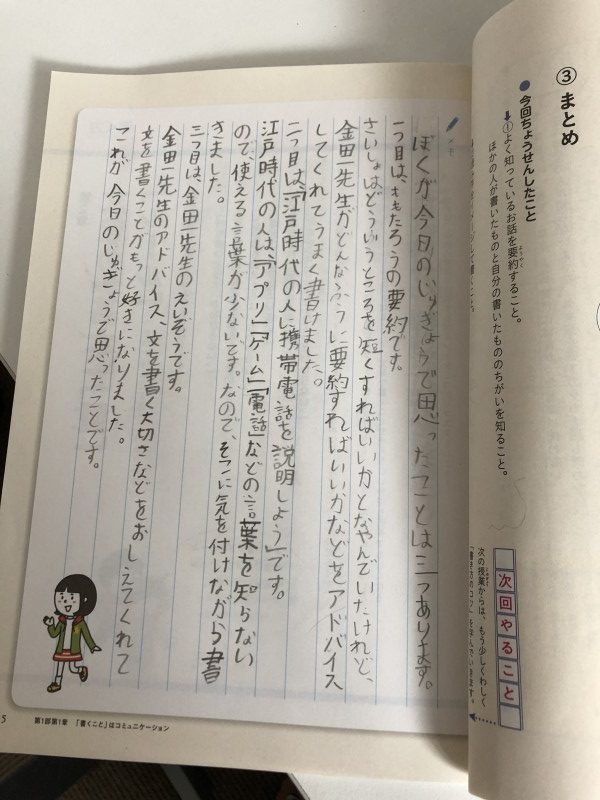 ③ まとめ
● 今回ちょうせんしたこと
①よく知っているお話を要約すること。
ようやく
ほかの人が書いたものと自分の書いたもののちがいを知ること。
次回やること
次の授業からは、もう少しくわしく
じゅぎょう
「書き方のコツ」を学んでいきます。
メモ
ぼくが今日のじゅぎょうで思ったことは三つあります。
一つ目は、ももたろうの要約です。
さいしょはどういうところを短くすればいいかとなやんでいたけれど、
金田一先生がどんなふうに要約すればいいかなどをアドバイス
してくれてうまく書けました。
二つ目は、「江戸時代の人に携帯電話を説明しよう」です。
江戸時代の人は、「アプリ」「ゲーム」「電話」などの言葉を知らない
ので、使える言葉が少ないです。なので、そこに気を付けながら書
きました。
三つ目は、金田一先生のえいぞうです。
金田一先生のアドバイス、文を書く大切さなどをおしえてくれて
文を書くことがもっと好きになりました。
これが今日のじゅぎょうで思ったことです。
5 第1部第1章 「書くこと」はコミュニケーション